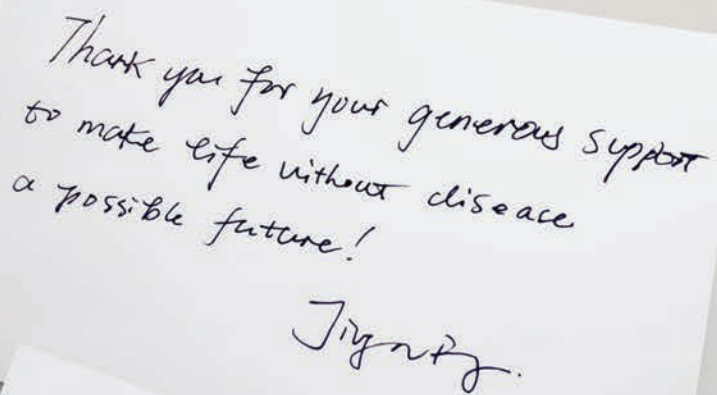 Thank you for your generous support
to make life without disease
a possible future!